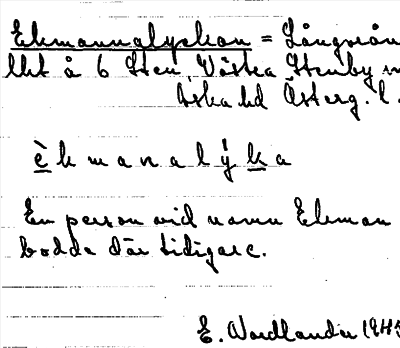 Ekmannalyckan = Långrön
lht å 6 Sten, Västra Stenby sn
Aska hd Österg. l.
è k m a n a l ý k a
En person vid namn Ekman
bodde där tidigare.
E. Nordlander 1945